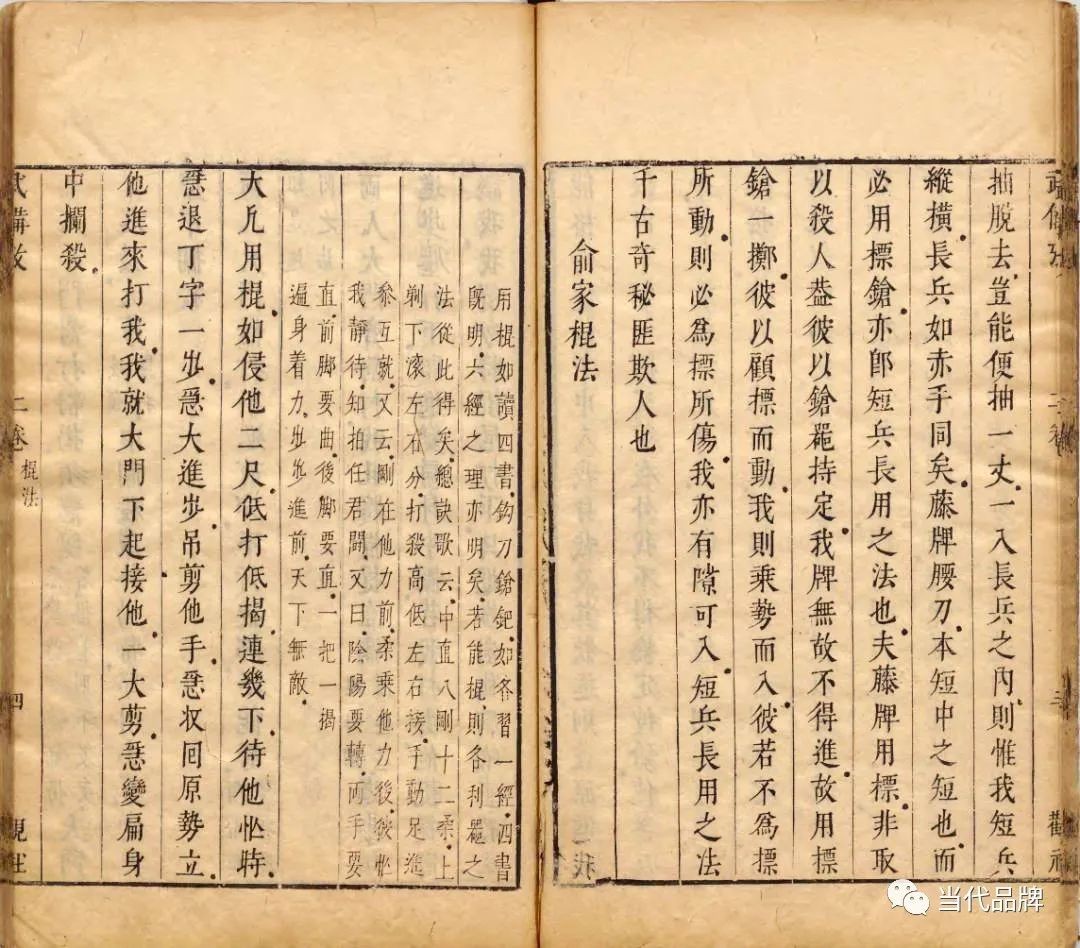 抽脫去豈能便抽一丈一入長兵之內則惟我短兵
縱橫長兵如赤手同矣藤牌腰刀本短中之短也而
必用標鎗亦卽短兵長用之法也夫藤牌用標非取
以殺人葢彼以鎗噐持定我牌無故不得進故用標
鎗一擲彼以顧標而動我則乘勢而入彼若不為標
所動則必為標所傷我亦有隙可入短兵長用之法
千古奇秘匪欺人也
俞家棍法
用棍如讀四書鈎刀鎗鈀如各習一經四書
旣明六經之理亦明矣若能棍則各利噐之
法從此得矣總訣歌云中直八剛十二柔上
剃下滚左右分打殺高低左右接手動足進
叅互就又云剛在他力前柔乘他力後彼忙
我靜待知拍任君鬬又曰陰陽要轉兩手要
直前脚要曲後脚要直一把一揭
遍身着力步步進前天下無敵
大凡用棍如侵他二尺低打低揭連幾下待他忙時
急退丁字一步急大進步吊剪他手急收囘原勢立
他進來打我我就大門下起接他一大剪急變扁身
中攔殺
二卷 棍法
四
当代品牌